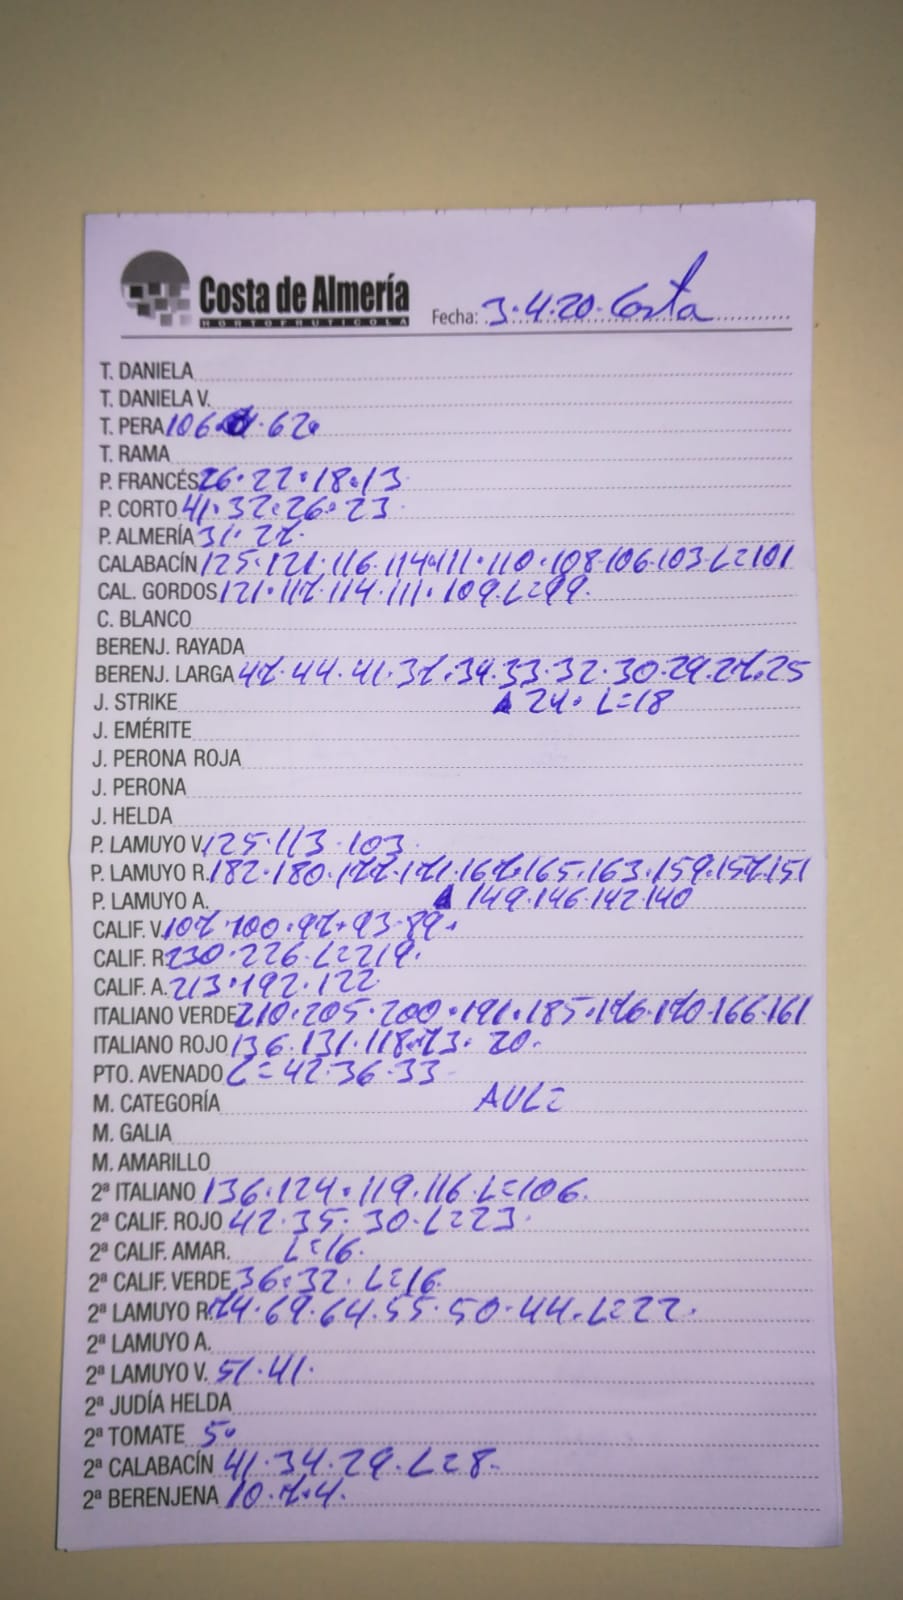 Costa de Almería
HORTOFRUTICOLA
Fecha: 3.4.20. Costa
T. DANIELA
T. DANIELA V.
T. PERA 106. 62.
T. RAMA
P. FRANCÉS 26.22.18.13
P. CORTO 41.32.26.23
P. ALMERÍA 31.27.
CALABACÍN 125.121.116.114.111.110.108.106.103.L=101
CAL. GORDOS 121.117.114.111.109.L=99.
C. BLANCO
BERENJ. RAYADA
BERENJ. LARGA 47.44.41.37.34.33.32.30.29.27.25
J. STRIKE 24. L=18
J. EMÉRITE
J. PERONA ROJA
J. PERONA
J. HELDA
P. LAMUYO V. 125.113.103
P. LAMUYO R. 182.180.177.171.167.165.163.159.157.151
P. LAMUYO A. 149.146.142.140
CALIF. V. 107.100.97.93.89.
CALIF. R. 230.226.L=219.
CALIF. A. 213.192.122
ITALIANO VERDE 210.205.200.191.185.176.170.166.161
ITALIANO ROJO 136.131.118.73.20.
PTO. AVENADO L=42.36.33
M. CATEGORÍA AVL=
M. GALIA
M. AMARILLO
2ª ITALIANO 136.124.119.116.L=106.
2ª CALIF. ROJO 42.35.30.L=23.
2ª CALIF. AMAR. L=16.
2ª CALIF. VERDE 36.32.L=16.
2ª LAMUYO R. 74.69.64.55.50.44.L=22.
2ª LAMUYO A.
2ª LAMUYO V. 51.41.
2ª JUDÍA HELDA
2ª TOMATE 5.
2ª CALABACÍN 41.34.29.L=8.
2ª BERENJENA 10.7.4.